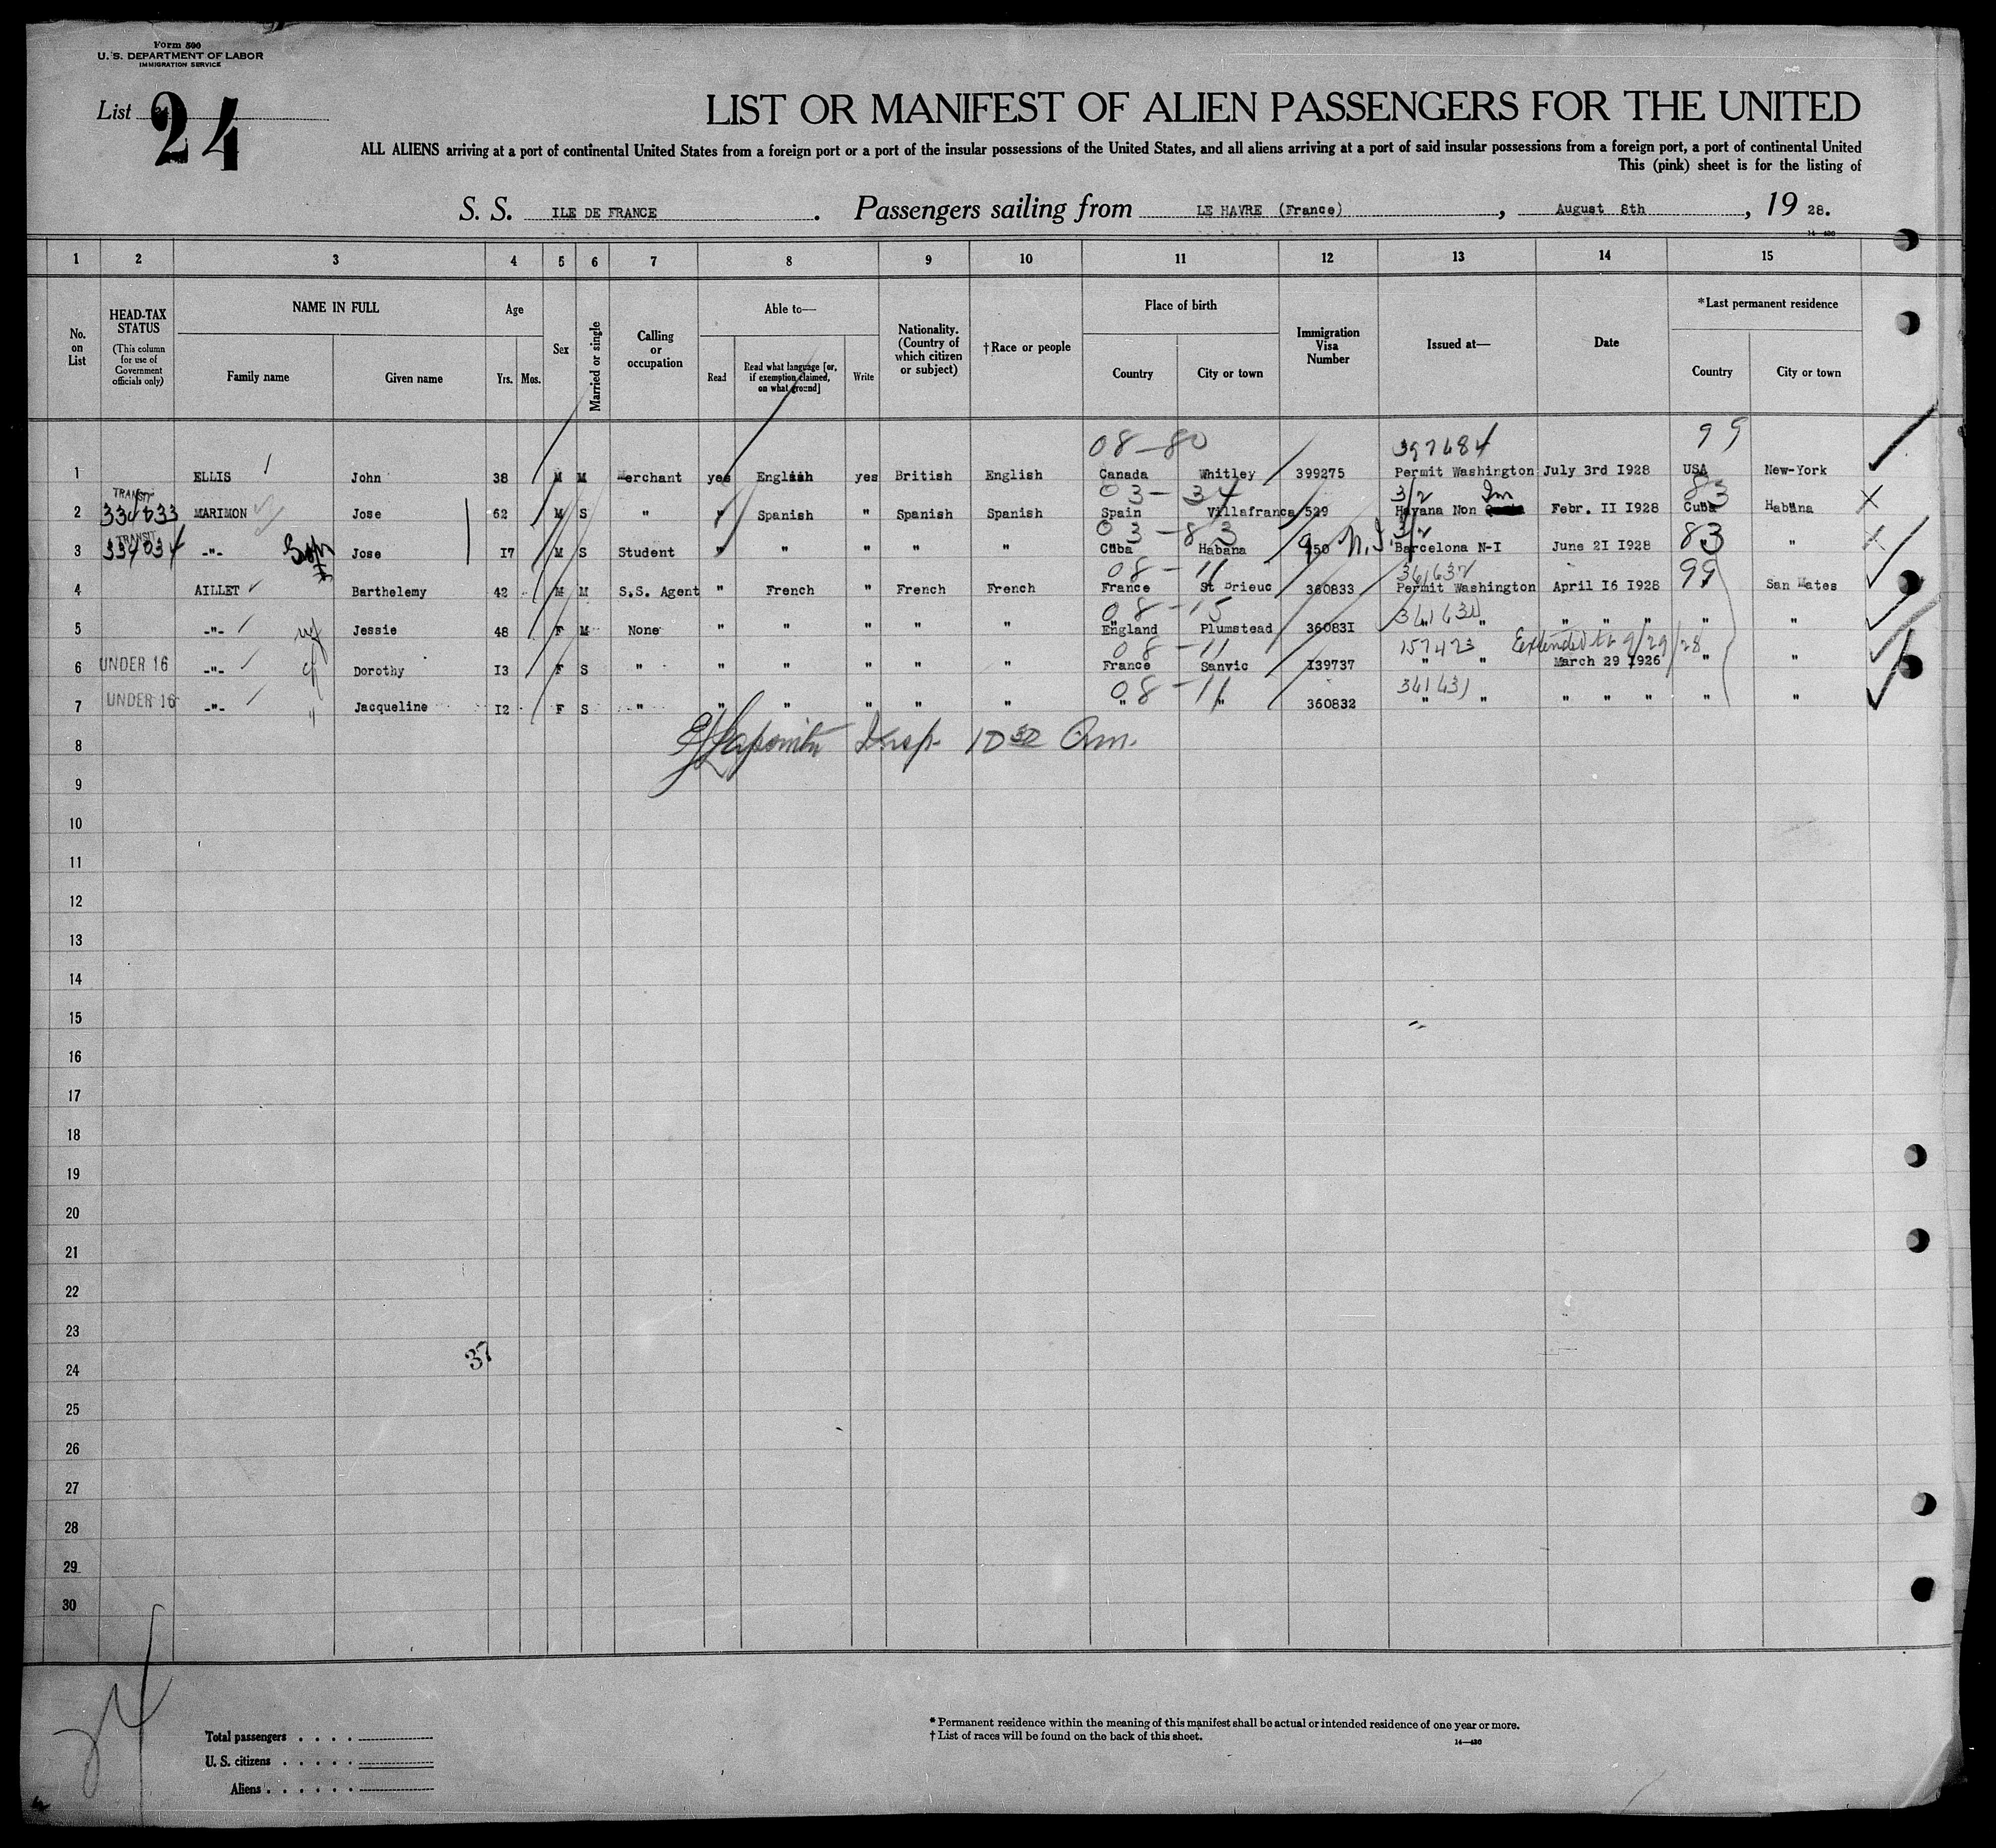 Form 500
U. S. DEPARTMENT OF LABOR
IMMIGRATION SERVICE
List 24
LIST OR MANIFEST OF ALIEN PASSENGERS FOR THE UNITED
ALL ALIENS arriving at a port of continental United States from a foreign port or a port of the insular possessions of the United States, and all aliens arriving at a port of said insular possessions from a foreign port, a port of continental United
This (pink) sheet is for the listing of
S. S. ILE DE FRANCE . Passengers sailing from LE HAVRE (France) , August 8th , 19 28.
1 2 3 4 5 6 7 8 9 10 11 12 13 14 15
No. on List
HEAD-TAX STATUS (This column for use of Government officials only)
NAME IN FULL
Family name Given name
Age
Yrs. Mos.
Sex
Married or single
Calling or occupation
Able to—
Read Read what language [or, if exemption claimed, on what ground] Write
Nationality. (Country of which citizen or subject)
†Race or people
Place of birth
Country City or town
Immigration Visa Number
Issued at—
Date
*Last permanent residence
Country City or town
08-80 397684 99
1 ELLIS John 38 M M Merchant yes English yes British English Canada Whitley 399275 Permit Washington July 3rd I928 USA New-York
TRANSIT 03-34 3/2 83
2 334633 MARIMON Jose 62 M S " " Spanish " Spanish Spanish Spain Villafranca 529 Havana Non Im Febr. II I928 Cuba Habana
TRANSIT 03-83 83
3 334634 -"- Son Jose I7 M S Student " " " " " Cuba Habana 950 N.I. Barcelona N-I June 2I I928 " "
08-11 361632 99
4 AILLET Barthelemy 42 M M S.S. Agent " French " French French France St Brieuc 360833 Permit Washington April I6 I928 San Mates
08-15
5 -"- wf Jessie 48 F M None " " " " " England Plumstead 36083I " " " " " " "
08-11 157423 Extended to 9/29/28
6 UNDER 16 -"- Dorothy I3 F S " " " " " " France Sanvic I39737 " " March 29 I926 " "
08-11 361631
7 UNDER 16 -"- " Jacqueline I2 F S " " " " " " " " 360832 " " " " " " "
8 Insp. 10 30 Am.
9
10
11
12
13
14
15
16
17
18
19
20
21
22
23
37
24
25
26
27
28
29
30
24
Total passengers . . . .
U. S. citizens . . . . .
Aliens . . . . . .
* Permanent residence within the meaning of this manifest shall be actual or intended residence of one year or more.
† List of races will be found on the back of this sheet.
14—430